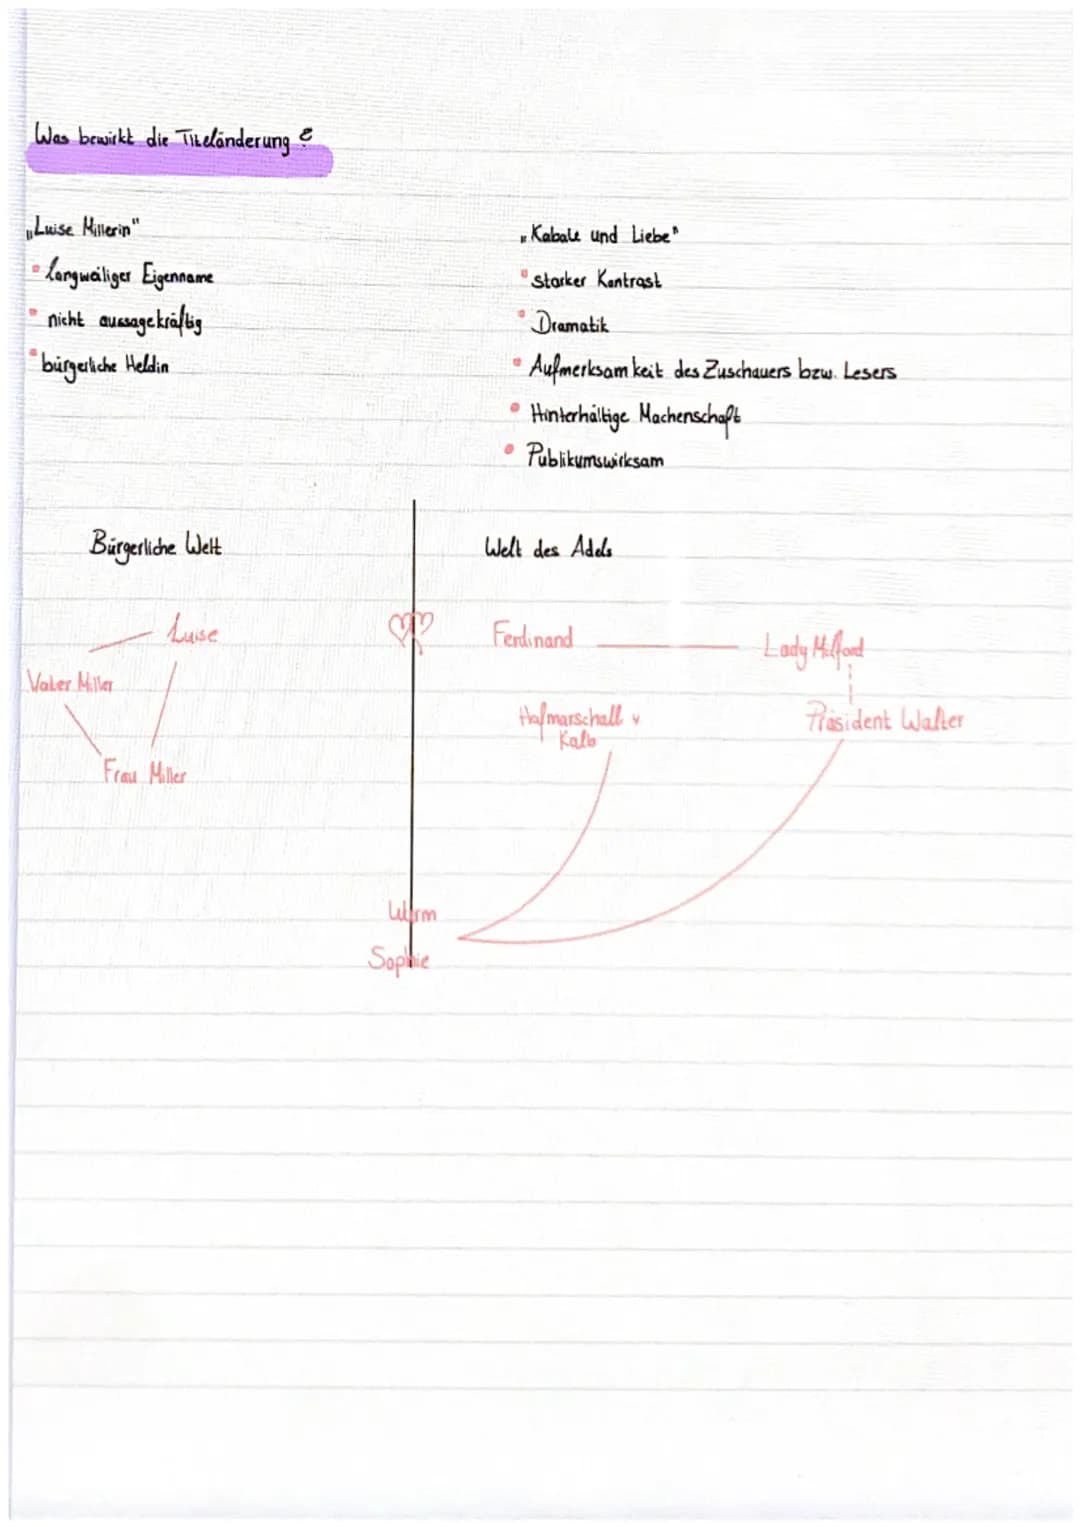 Was bewirkt die Titeländerung?
„Luise Millerin"
langweiliger Eigenname
nicht aussagekräftig
bürgerliche Heldin
„Kabale und Liebe"
starker Kontrast
Dramatik
Aufmerksamkeit des Zuschauers bzw. Lesers
Hinterhältige Machenschaft
Publikumswirksam
Bürgerliche Welt
Welt des Adels
Luise
Ferdinand
Lady Milford
Vater Miller
Hofmarschall v
Kalb
Präsident Walter
Frau Miller
Wurm
Sophie